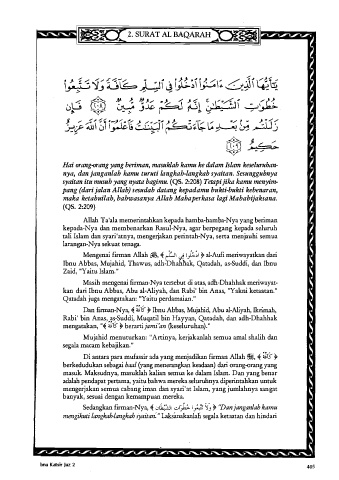 2. SURAT AL BAQARAH
يَٰٓأَيُّهَا ٱلَّذِينَ ءَامَنُوا۟ ٱدْخُلُوا۟ فِى ٱلسِّلْمِ كَآفَّةً وَلَا تَتَّبِعُوا۟
خُطُوَٰتِ ٱلشَّيْطَٰنِ إِنَّهُۥ لَكُمْ عَدُوٌّ مُّبِينٌ ﴿٢٠٨﴾ فَإِن
زَلَلْتُم مِّنۢ بَعْدِ مَا جَآءَتْكُمُ ٱلْبَيِّنَٰتُ فَٱعْلَمُوٓا۟ أَنَّ ٱللَّهَ عَزِيزٌ
حَكِيمٌ ﴿٢٠٩﴾
Hai orang-orang yang beriman, masuklah kamu ke dalam Islam keseluruhan-
nya, dan janganlah kamu turuti langkah-langkah syaitan. Sesungguhnya
syaitan itu musuh yang nyata bagimu. (QS. 2:208) Tetapi jika kamu menyim-
pang (dari jalan Allah) sesudah datang kepadamu bukti-bukti kebenaran,
maka ketahuilah, bahwasanya Allah Mahaperkasa lagi Mahabijaksana.
(QS. 2:209)
Allah Ta'ala memerintahkan kepada hamba-hamba-Nya yang beriman
kepada-Nya dan membenarkan Rasul-Nya, agar berpegang kepada seluruh
tali Islam dan syari'atnya, mengerjakan perintah-Nya, serta menjauhi semua
larangan-Nya sekuat tenaga.
Mengenai firman Allah ﷻ, ﴿ ادْخُلُوا فِي السِّلْمِ ﴾ al-Aufi meriwayatkan dari
Ibnu Abbas, Mujahid, Thawus, adh-Dhahhak, Qatadah, as-Suddi, dan Ibnu
Zaid, "Yaitu Islam."
Masih mengenai firman-Nya tersebut di atas, adh-Dhahhak meriwayat-
kan dari Ibnu Abbas, Abu al-Aliyah, dan Rabi' bin Anas, "Yakni ketaatan."
Qatadah juga mengatakan: "Yaitu perdamaian."
Dan firman-Nya, ﴿ كَآفَّةً ﴾ Ibnu Abbas, Mujahid, Abu al-Aliyah, Ikrimah,
Rabi' bin Anas, as-Suddi, Muqatil bin Hayyan, Qatadah, dan adh-Dhahhak
mengatakan, "﴿ كَآفَّةً ﴾ berarti jami'an (keseluruhan)."
Mujahid menuturkan: "Artinya, kerjakanlah semua amal shalih dan
segala macam kebajikan."
Di antara para mufassir ada yang menjadikan firman Allah ﷻ, ﴿ كَآفَّةً ﴾
berkedudukan sebagai haal (yang menerangkan keadaan) dari orang-orang yang
masuk. Maksudnya, masuklah kalian semua ke dalam Islam. Dan yang benar
adalah pendapat pertama, yaitu bahwa mereka seluruhnya diperintahkan untuk
mengerjakan semua cabang iman dan syari'at Islam, yang jumlahnya sangat
banyak, sesuai dengan kemampuan mereka.
Sedangkan firman-Nya, ﴿ وَلاَ تَتَّبِعُوا خُطُوَاتِ الشَّيْطَانِ ﴾ "Dan janganlah kamu
mengikuti langkah-langkah syaitan." Laksanakanlah segala ketaatan dan hindari
Ibnu Katsir Juz 2
405